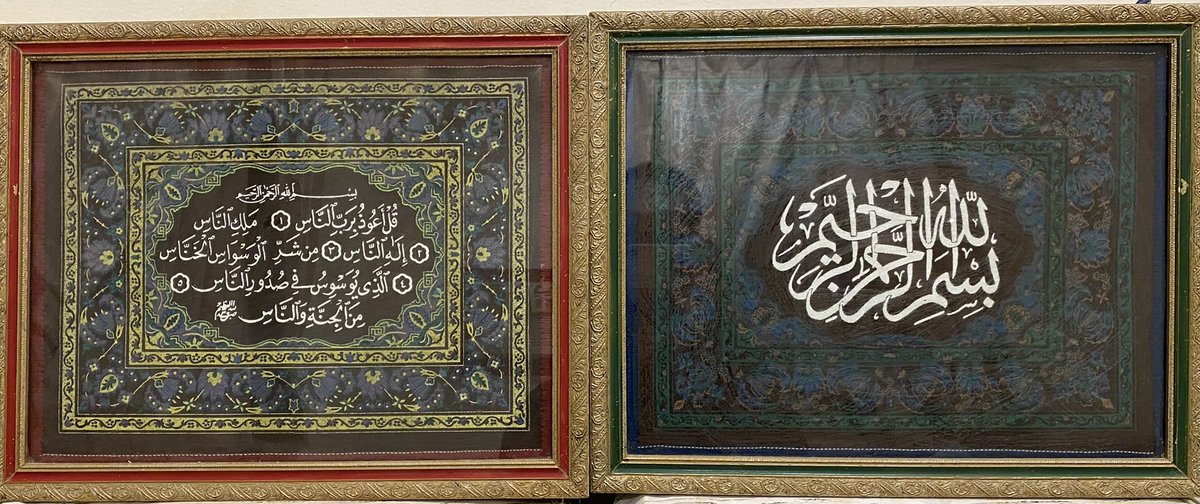 بسم الله الرحمن الرحيم
قُلْ أَعُوذُ بِرَبِّ ٱلنَّاسِ ١ مَلِكِ ٱلنَّاسِ
٢ إِلَٰهِ ٱلنَّاسِ ٣ مِن شَرِّ ٱلْوَسْوَاسِ ٱلْخَنَّاسِ
٤ ٱلَّذِي يُوَسْوِسُ فِي صُدُورِ ٱلنَّاسِ ٥
مِنَ ٱلْجِنَّةِ وَٱلنَّاسِ
بِسْمِ ٱللَّهِ ٱلرَّحْمَٰنِ ٱلرَّحِيمِ